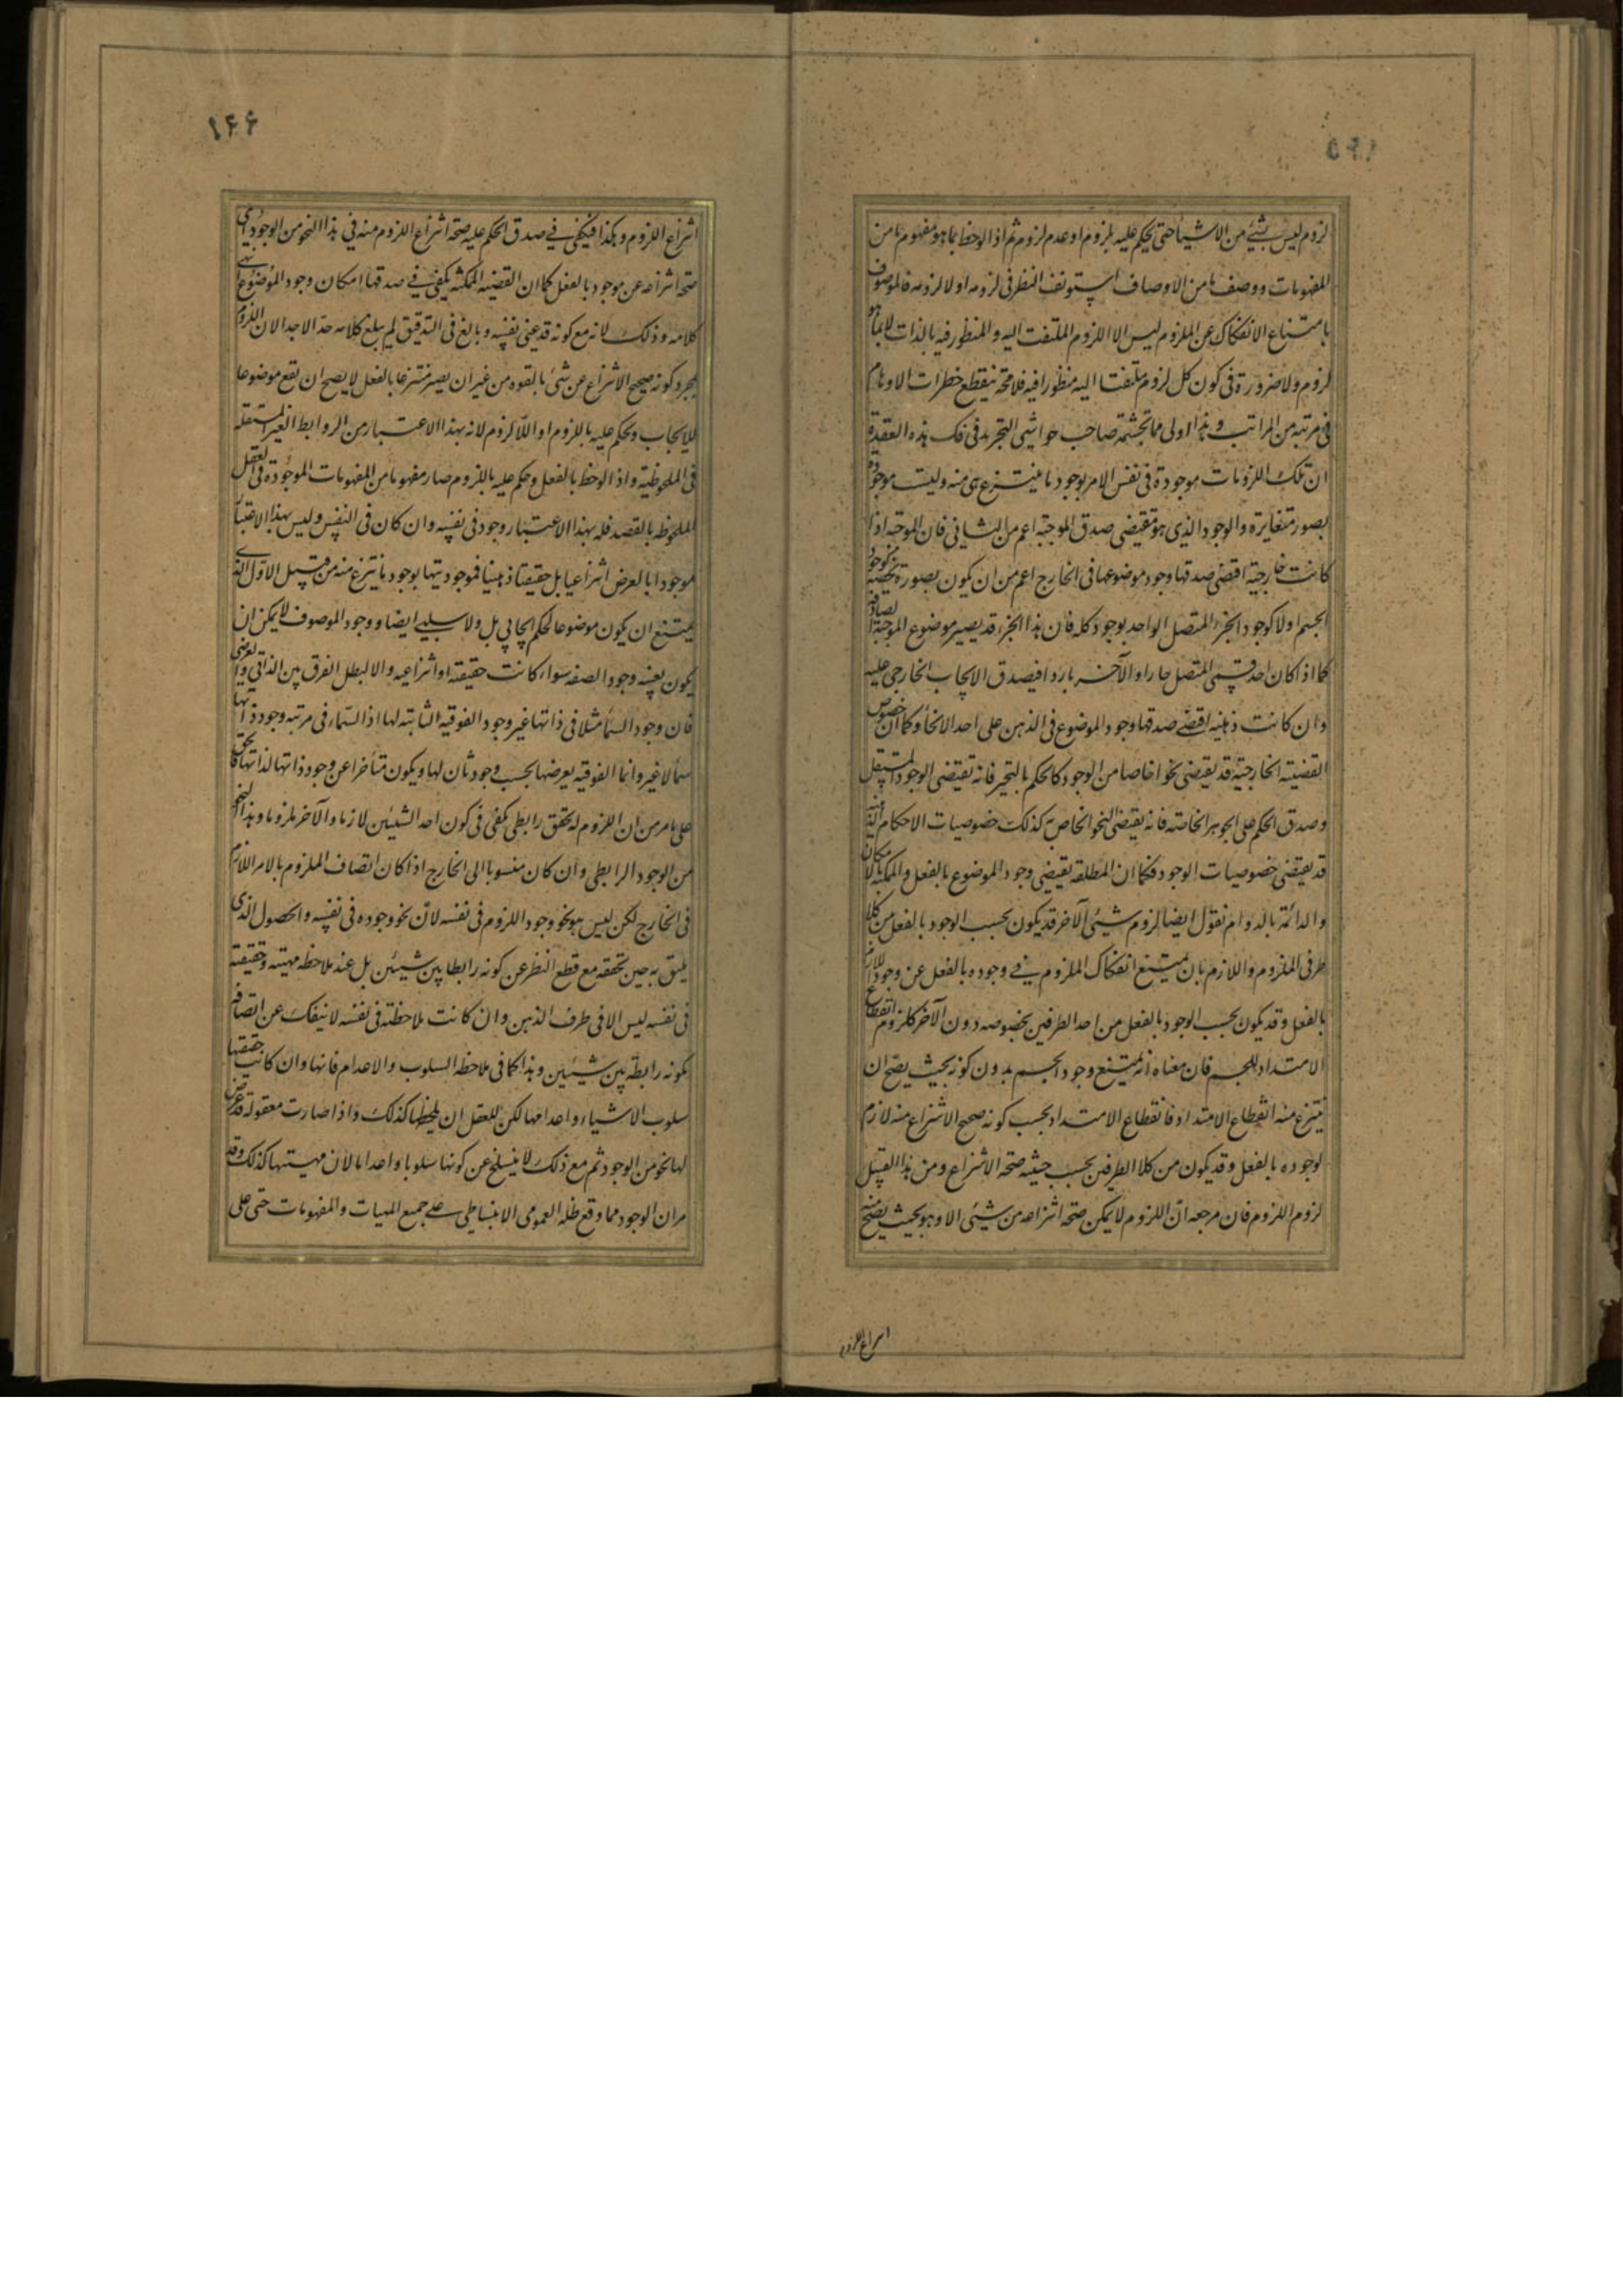 لزوم ليس بشئ من الاشياء حتى يحكم عليه بلزوم او عدم لزوم ثم اذا لوحظ بما هو مفهوم ما من
المفهومات ووصف ما من الاوصاف استونف النظر فى لزومه اولا لزومه فالموصوف
بامتناع الانفكاك عن الملزوم ليس الا اللزوم الملتفت اليه والمنظور فيه بالذات لا بما هو
لزوم ولا ضرورة فى كون كل لزوم ملتفتا اليه منظورا فيه فلا محة ينقطع خطرات الاوهام
فى مرتبة من المراتب وهذا اولى مما تجشمه صاحب حواشى التجريد فى فك هذه العقدة
ان تلك اللزومات موجودة فى نفس الامر بوجود ما ينتزع هى منه وليست موجودة
بصور متغايرة والوجود الذى هو مقتضى صدق الموجبة اعم من الثانى فان الموجبة اذا
كانت خارجية اقتضى صدقها وجود موضوعها فى الخارج اعم من ان يكون بصورة تخصه كوجود
الجسم اولا كوجود الجزء المتصل الواحد بوجود كله فان هذا الجزء قد يصير موضوع الموجبة الصادقة
كما اذا كان احد قسمى المتصل حارا والآخر باردا فيصدق الايجاب الخارجى عليه
وان كانت ذهنية اقتضى صدقها وجود الموضوع فى الذهن على احد الانحاء وكما ان خصوص
القضية الخارجية قد يقتضى نحوا خاصا من الوجود كالحكم بالتحيز فانه تقتضى الوجود المستقل
وصدق الحكم على الجوهر الخاصة فانه يقتضى النحو الخاص به كذلك خصوصيات الاحكام الذهنية
قد يقتضى خصوصيات الوجود فكما ان المطلقة تقتضى وجود الموضوع بالفعل والممكنة بالامكان
والدائمة بالدوام نقول ايضا لزوم شئ الآخر قد يكون بحسب الوجود بالفعل من كلا
طرفى الملزوم واللازم بان يمتنع انفكاك الملزوم فى وجوده بالفعل عن وجود اللازم
بالفعل وقد يكون بحسب الوجود بالفعل من احد الطرفين بخصوصه دون الآخر كلزوم انقطاع
الامتداد للجسم فان معناه انه يمتنع وجود الجسم بدون كونه بحيث يصح ان
ينتزع منه انقطاع الامتداد فانقطاع الامتداد بحسب كونه صحيح الانتزاع منه لازم
لوجوده بالفعل وقد يكون من كلا الطرفين بحسب حيثية صحة الانتزاع ومن هذا القبيل
لزوم اللزوم فان مرجعه ان اللزوم لا يمكن صحة انتزاعه من شئ الا وهو بحيث يصح منه
انتزاع اللزوم
١٤٤
انتزاع اللزوم وهكذا فيكفى فى صدق الحكم عليه صحة انتزاع اللزوم منه فى هذا النحو من الوجود اى
صحة انتزاعه عن موجود بالفعل كما ان القضية الممكنة يكفى فى صدقها امكان وجود الموضوع انتهى
كلامه وذلك لانه مع كونه قد عنى نفسه وبالغ فى التدقيق لم يبلغ كلامه حد الاجداء لان اللزوم
بمجرد كونه صحيح الانتزاع عن شئ بالقوه من غير ان يصير منتزعا بالفعل لا يصح ان يقع موضوعا
للايجاب ويحكم عليه باللزوم او اللا لزوم لانه بهذا الاعتبار من الروابط الغير المستقلة
فى الملحوظية واذا لوحظ بالفعل وحكم عليه باللزوم صار مفهوما من المفهومات الموجودة فى العقل
الملحوظ بالقصد فله بهذا الاعتبار وجود فى نفسه وان كان فى النفس وليس بهذا الاعتبار
موجودا بالعرض انتزاعيا بل حقيقتا ذهنيا فموجوديتها بوجود ما ينتزع منه من قبيل الاول الذى
يمتنع ان يكون موضوعا لحكم ايجابى بل ولا سلبى ايضا ووجود الموصوف لا يمكن ان
يكون بعينه وجود الصفه سواء كانت حقيقة او انتزاعيه والا لبطل الفرق بين الذاتى والعرضى
فان وجود السماء مثلا فى ذاتها غير وجود الفوقية الثابتة لها اذ السماء فى مرتبه وجود ذاتها
سماء لا غير وانما الفوقيه يعرضها بحسب وجود ثان لها ويكون متأخرا عن وجود ذاتها لذاتها فالحق
على ما مر من ان اللزوم له تحقق رابطى يكفى فى كون احد الشيئين لازما والآخر ملزوما وهذا النحو
من الوجود الرابطى وان كان منسوبا الى الخارج اذا كان اتصاف الملزوم بالامر اللازم
فى الخارج لكن ليس هو نحو وجود اللزوم فى نفسه لان نحو وجوده فى نفسه والحصول الذى
يليق به حين تحققه مع قطع النظر عن كونه رابطا بين شيئين بل عند ملاحظه مهيته وحقيقته
فى نفسه ليس الا فى ظرف الذهن وان كانت ملاحظته فى نفسه لا ينفك عن اتصافه
بكونه رابطة بين شيئين وهذا كما فى ملاحظه السلوب والاعدام فانها وان كانت حقيقتها
سلوب الاشياء واعدامها لكن للعقل ان يلحظها كذلك واذا صارت معقولة قد عرض
لها نحو من الوجود ثم مع ذلك لا ينسلخ عن كونها سلوبا واعداما لان مهيتها كذلك وقد
مر ان الوجود مما وقع ظله العمومى الانبساطى على جميع المهيات والمفهومات حتى على